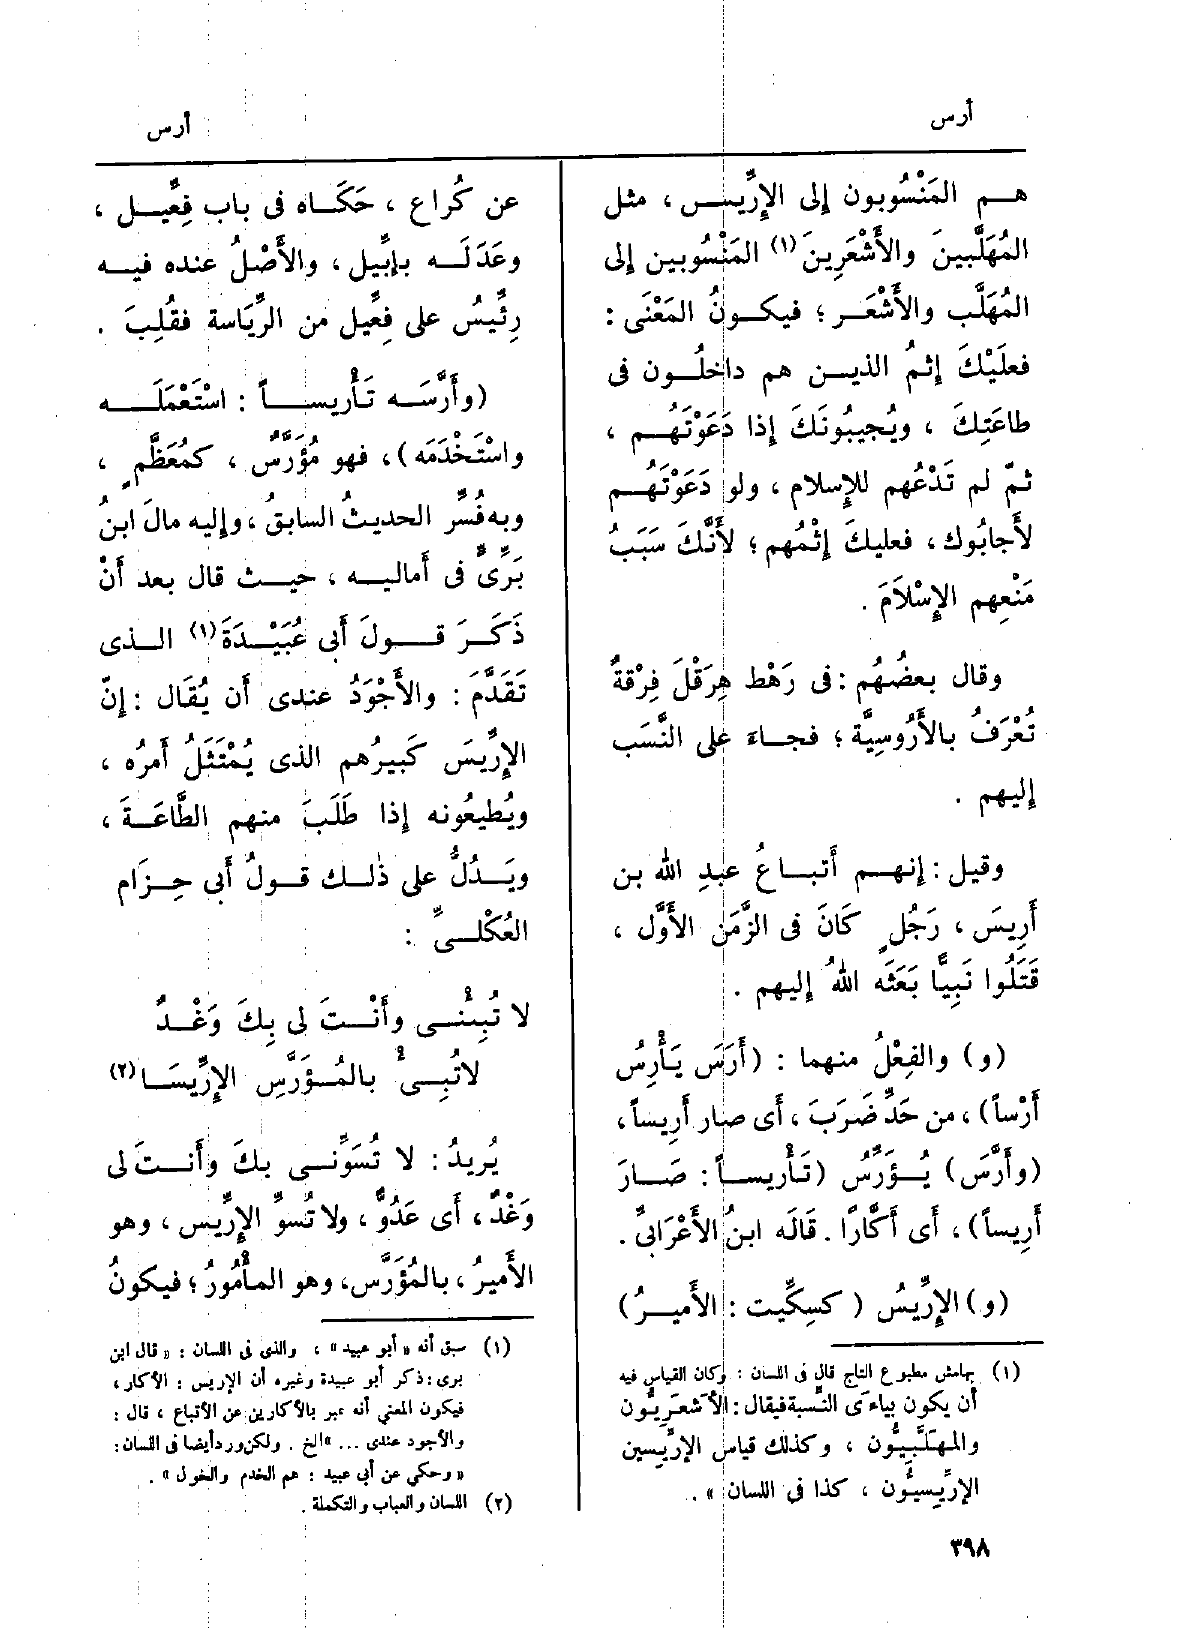 أرس
أرس
هم المَنْسُوبون إلى الإِرِّيس ، مثل
المُهَلَّبينَ والأَشْعَرِينَ(١) المَنْسُوبين إلى
المُهَلَّب والأَشْعَر ؛ فيكونُ المَعْنَى :
فعلَيْكَ إثمُ الذين هم داخلُون فى
طاعَتِكَ ، ويُجيبُونَكَ إذا دَعَوْتَهُم ،
ثمّ لم تَدْعُهم للإسلام ، ولو دَعَوْتَهُم
لأَجابُوك ، فعليكَ إثْمُهم ؛ لأَنَّكَ سَبَبُ
مَنْعِهم الإِسْلاَمَ .
وقال بعضُهُم : فى رَهْط هِرَقْلَ فِرْقةٌ
تُعْرَفُ بالأَرُوسِيَّة ؛ فجاءَ على النَّسَب
إليهم .
وقيل : إنهم أَتباعُ عبدِ الله بن
أَرِيسَ ، رَجُلٍ كَانَ فى الزَّمَن الأَوَّل ،
قَتَلُوا نَبِيًّا بَعَثَه اللهُ إليهم .
(و) والفِعْلُ منهما : (أَرَسَ يَأْرِسُ
أَرْساً) ، من حَدِّ ضَرَبَ ، أى صار أَرِيساً ،
(وأَرَّسَ) يُؤَرِّسُ (تَأْرِيساً : صَارَ
أَرِيساً) ، أى أَكَّارًا . قَالَه ابنُ الأَعْرَابىِّ .
(و) الإِرِّيسُ ( كسِكِّيت : الأَميرُ )
(١) بهامش مطبوع التاج قال فى اللسان : وكان القياس فيه
أن يكون بياءَى النِّسبة فيقال : الأَشعَرِيُّون
والمهلَّبِيُّون ، وكذلك قياس الإرِّيسين
الإرِّيسيُّون ، كذا فى اللسان » .
عن كُراع ، حَكَاه فى باب فِعِّيل ،
وعَدَلَه بإبِّيل ، والأَصْلُ عنده فيه
رِئِّيسُ على فِعِّيل من الرِّيَاسة فقُلِبَ .
(وأَرَّسَه تَأْرِيساً : اسْتَعْمَلَه
واسْتَخْدَمَه) ، فهو مُؤَرَّسٌ ، كمُعَظَّمٍ ،
وبه فُسِّر الحديثُ السابقُ ، وإليه مالَ ابنُ
بَرِّىٍّ فى أَماليه ، حيث قال بعد أَنْ
ذَكَرَ قولَ أَبى عُبَيْدَةَ(١) الذى
تَقَدَّمَ : والأَجْوَدُ عندى أَن يُقَال : إنّ
الإِرِّيسَ كَبيرُهم الذى يُمْتَثَلُ أَمرُه ،
ويُطيعُونه إذا طَلَبَ منهم الطَّاعَةَ ،
ويَدُلُّ على ذٰلك قولُ أَبى حِزَام
العُكْلىِّ :
لا تُبِئْنى وأَنْتَ لى بِكَ وَغْدٌ
لاتُبِىْٔ بالمُؤَرَّسِ الإِرِّيسَا(٢)
يُرِيدُ : لا تُسَوِّنى بكَ وأَنتَ لى
وَغْدٌ ، أَى عَدُوٌّ ، ولا تُسوِّ الإِرِّيس ، وهو
الأَميرُ ، بالمُؤَرَّس ، وهو المأْمُورُ ؛ فيكونُ
(١) سبق أنه « أبو عبيد » ، والذى فى اللسان : « قال ابن
برى : ذكر أبو عبيدة وغيره أن الإريس : الأكار ،
فيكون المعنى أنه عبر بالأكارين عن الأتباع ، قال :
والأجود عندى ... » الخ . ولكن ورد أيضا فى اللسان :
« وحكي عن أبى عبيد : هم الخدم والخول » .
(٢) اللسان والعباب والتكملة .
٣٩٨